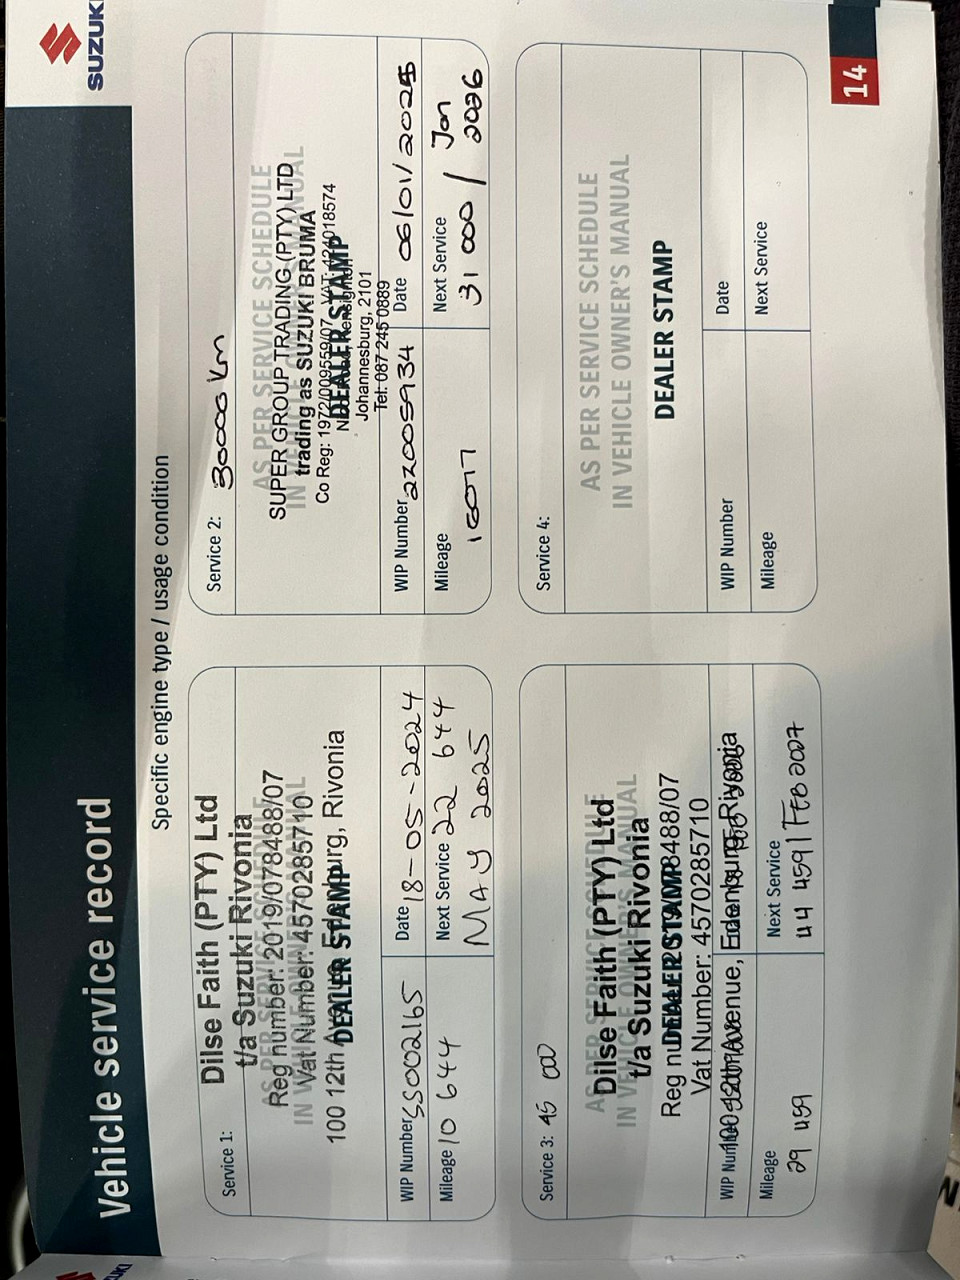 SUZUKI
Vehicle service record
Specific engine type / usage condition
Service 1:
AS PER SERVICE SCHEDULE
IN VEHICLE OWNER'S MANUAL
DEALER STAMP
Dilse Faith (PTY) Ltd
t/a Suzuki Rivonia
Reg number: 2019/078488/07
Vat Number: 4570285710
100 12th Avenue, Edenburg, Rivonia
WIP Number SS002165
Date 18-05-2024
Mileage 10 644
Next Service 22 644
MAY 2025
Service 2: 30000 km
AS PER SERVICE SCHEDULE
IN VEHICLE OWNER'S MANUAL
DEALER STAMP
SUPER GROUP TRADING (PTY) LTD
trading as SUZUKI BRUMA
Co Reg: 1972/009559/07 VAT:
Johannesburg, 2101
Tel: 087 245 0889
WIP Number 22005934
Date 06/01/2025
Mileage
16017
Next Service
31 000 / Jan
2026
Service 3: 45 000
AS PER SERVICE SCHEDULE
IN VEHICLE OWNER'S MANUAL
DEALER STAMP
Dilse Faith (PTY) Ltd
t/a Suzuki Rivonia
Reg number: 2019/078488/07
Vat Number: 4570285710
100 12th Avenue, Edenburg, Rivonia
WIP Number
Mileage
29 459
Next Service
44 459 / FEB 2027
Service 4:
AS PER SERVICE SCHEDULE
IN VEHICLE OWNER'S MANUAL
DEALER STAMP
WIP Number
Date
Mileage
Next Service
14